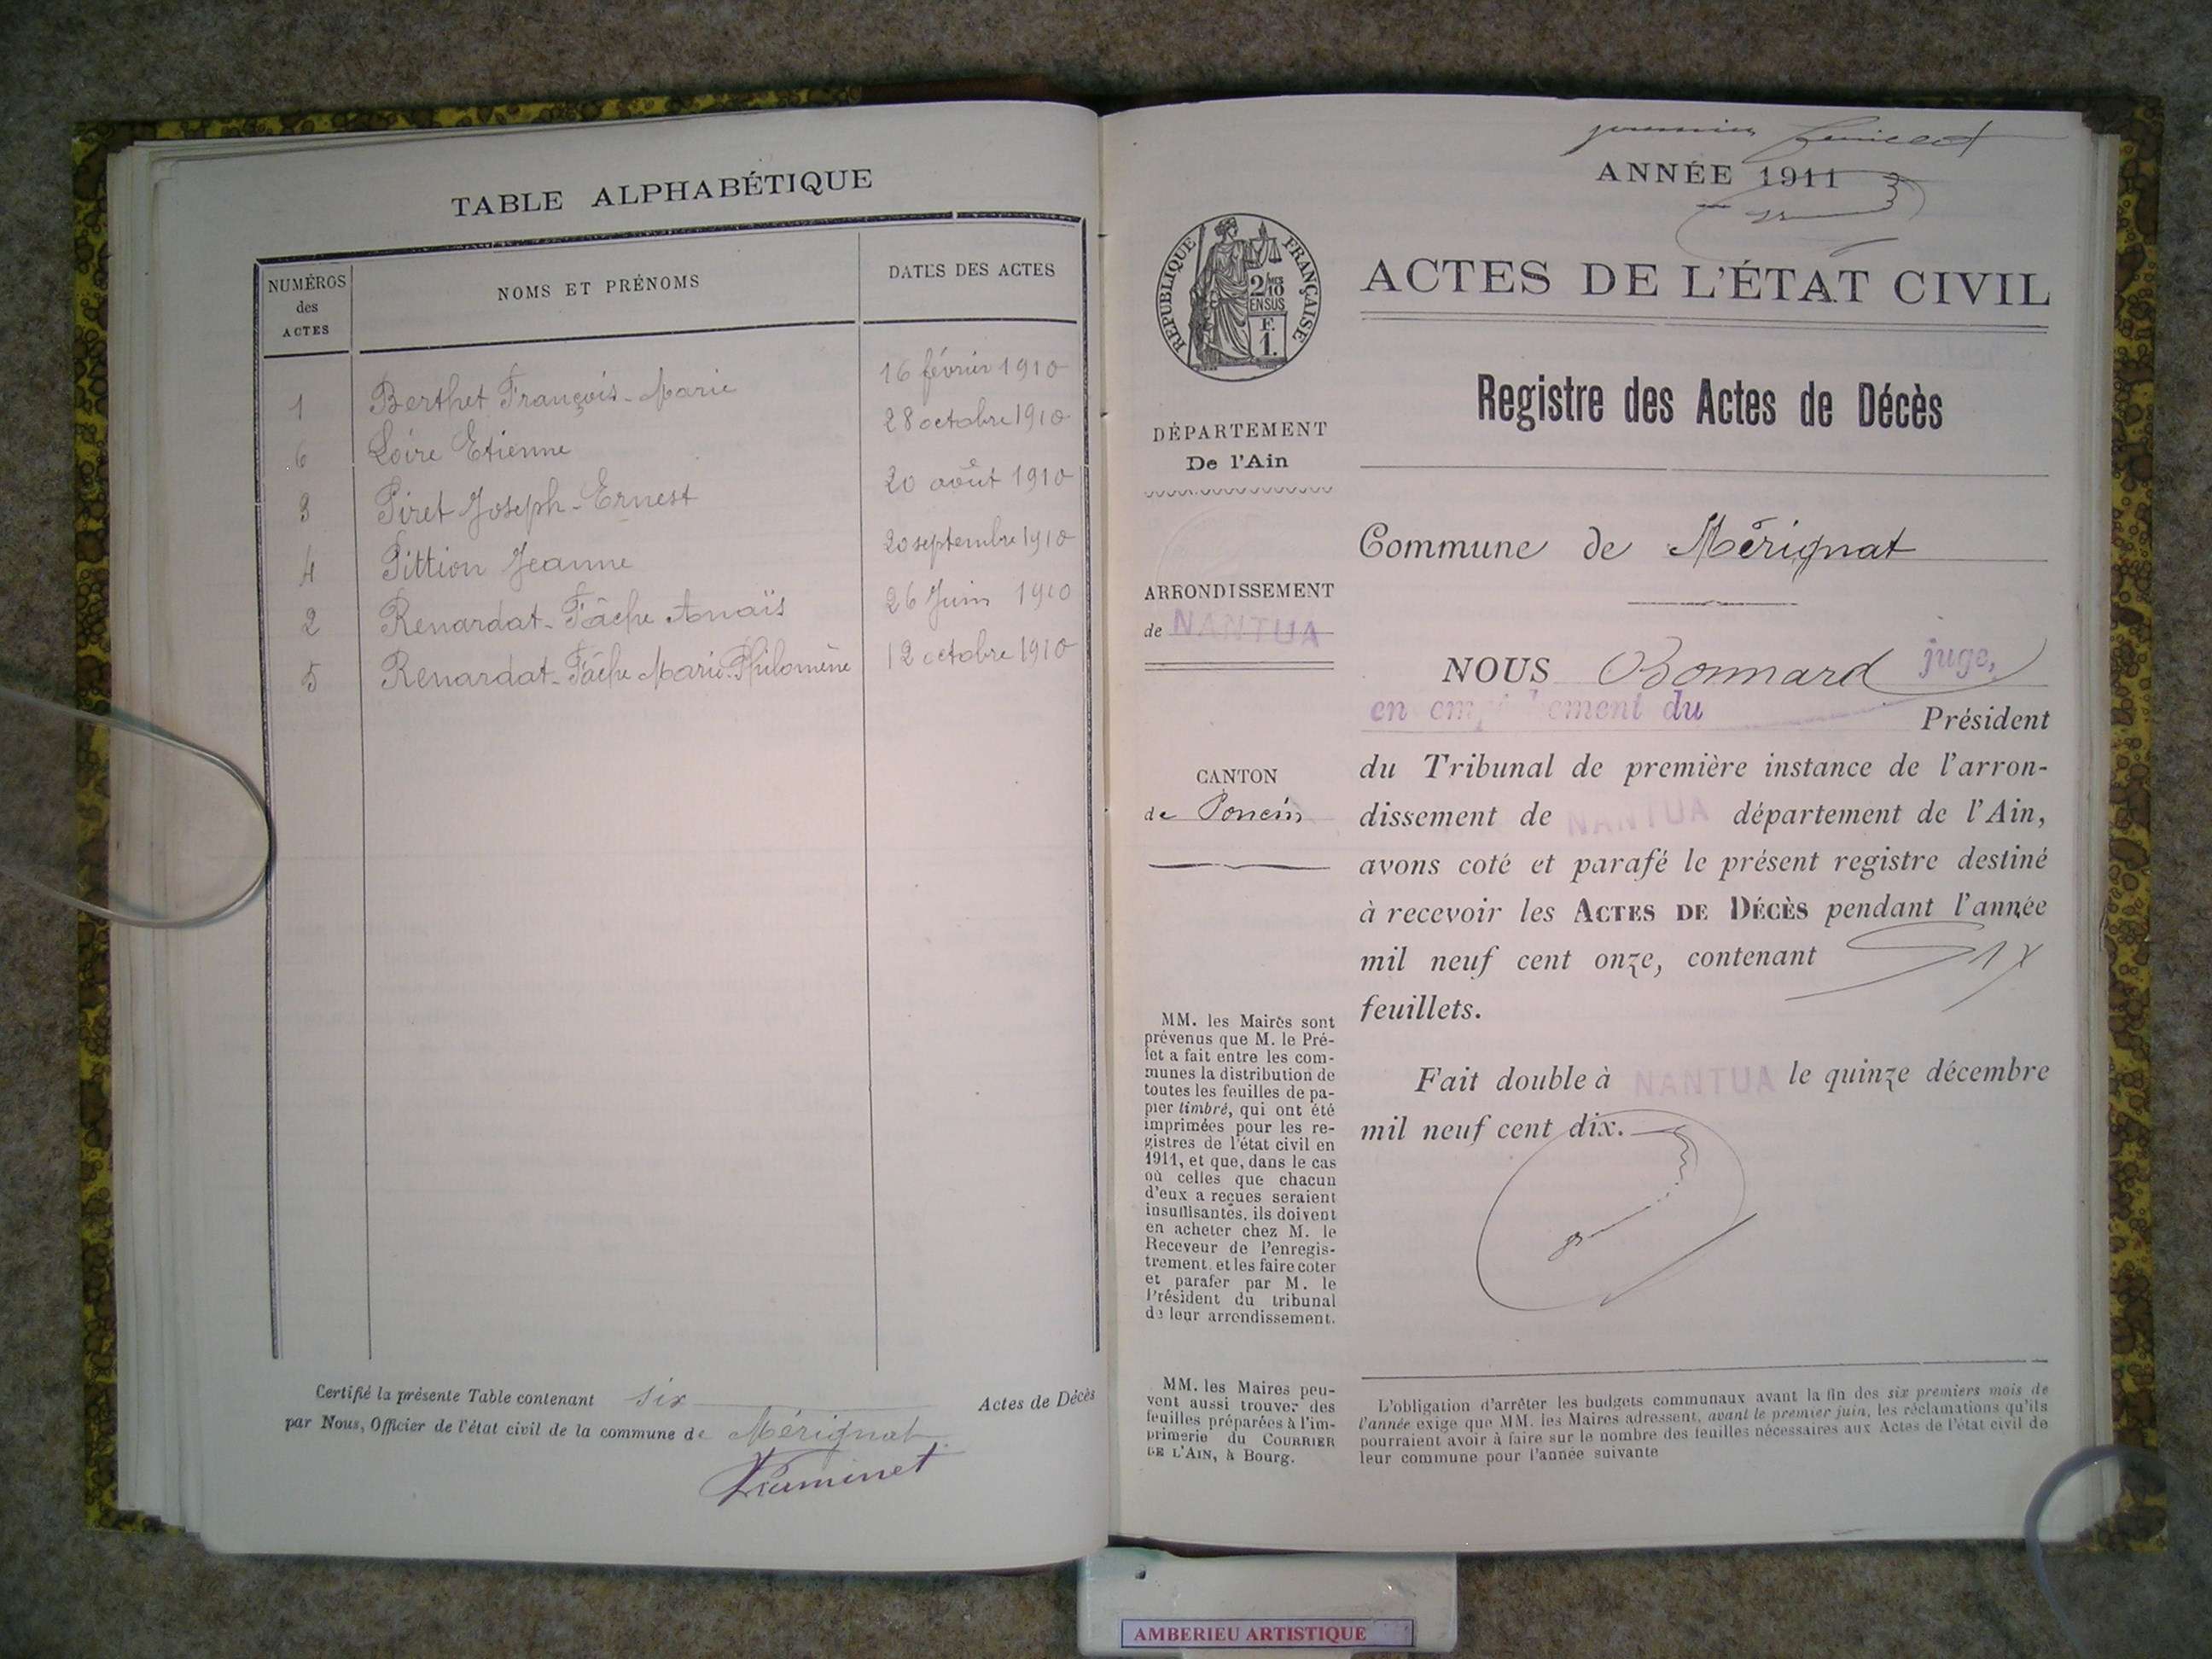 TABLE ALPHABÉTIQUE
NUMÉROS
des
ACTES
NOMS ET PRÉNOMS
DATES DES ACTES
1 Berthet François-Marie 16 février 1910
6 Loire Etienne 28 octobre 1910
3 Piret Joseph-Ernest 20 août 1910
4 Pittion Jeanne 20 septembre 1910
2 Renardat-Fâche Anaïs 26 Juin 1910
5 Renardat-Fâche Marie-Philomène 12 octobre 1910
Certifié la présente Table contenant six Actes de Décès
par Nous, Officier de l'état civil de la commune de Mérignat
premier feuillet
ANNÉE 1911
RÉPUBLIQUE FRANÇAISE
2/10
EN SUS
F.
1.
ACTES DE L'ÉTAT CIVIL
Registre des Actes de Décès
DÉPARTEMENT
De l'Ain
ARRONDISSEMENT
de NANTUA
CANTON
de Poncin
MM. les Maires sont
prévenus que M. le Pré-
fet a fait entre les com-
munes la distribution de
toutes les feuilles de pa-
pier timbré, qui ont été
imprimées pour les re-
gistres de l'état civil en
1911, et que, dans le cas
où celles que chacun
d'eux a reçues seraient
insuffisantes, ils doivent
en acheter chez M. le
Receveur de l'enregis-
trement, et les faire coter
et parafer par M. le
Président du tribunal
de leur arrondissement.
MM. les Maires peu-
vent aussi trouver des
feuilles préparées à l'im-
primerie du COURRIER
DE L'AIN, à Bourg.
Commune de Mérignat
NOUS Bonnard juge,
en empêchement du Président
du Tribunal de première instance de l'arron-
dissement de NANTUA département de l'Ain,
avons coté et parafé le présent registre destiné
à recevoir les ACTES DE DÉCÈS pendant l'année
mil neuf cent onze, contenant six
feuillets.
Fait double à NANTUA le quinze décembre
mil neuf cent dix.
L'obligation d'arrêter les budgets communaux avant la fin des six premiers mois de
l'année exige que MM. les Maires adressent, avant le premier juin, les réclamations qu'ils
pourraient avoir à faire sur le nombre des feuilles nécessaires aux Actes de l'état civil de
leur commune pour l'année suivante
AMBERIEU ARTISTIQUE